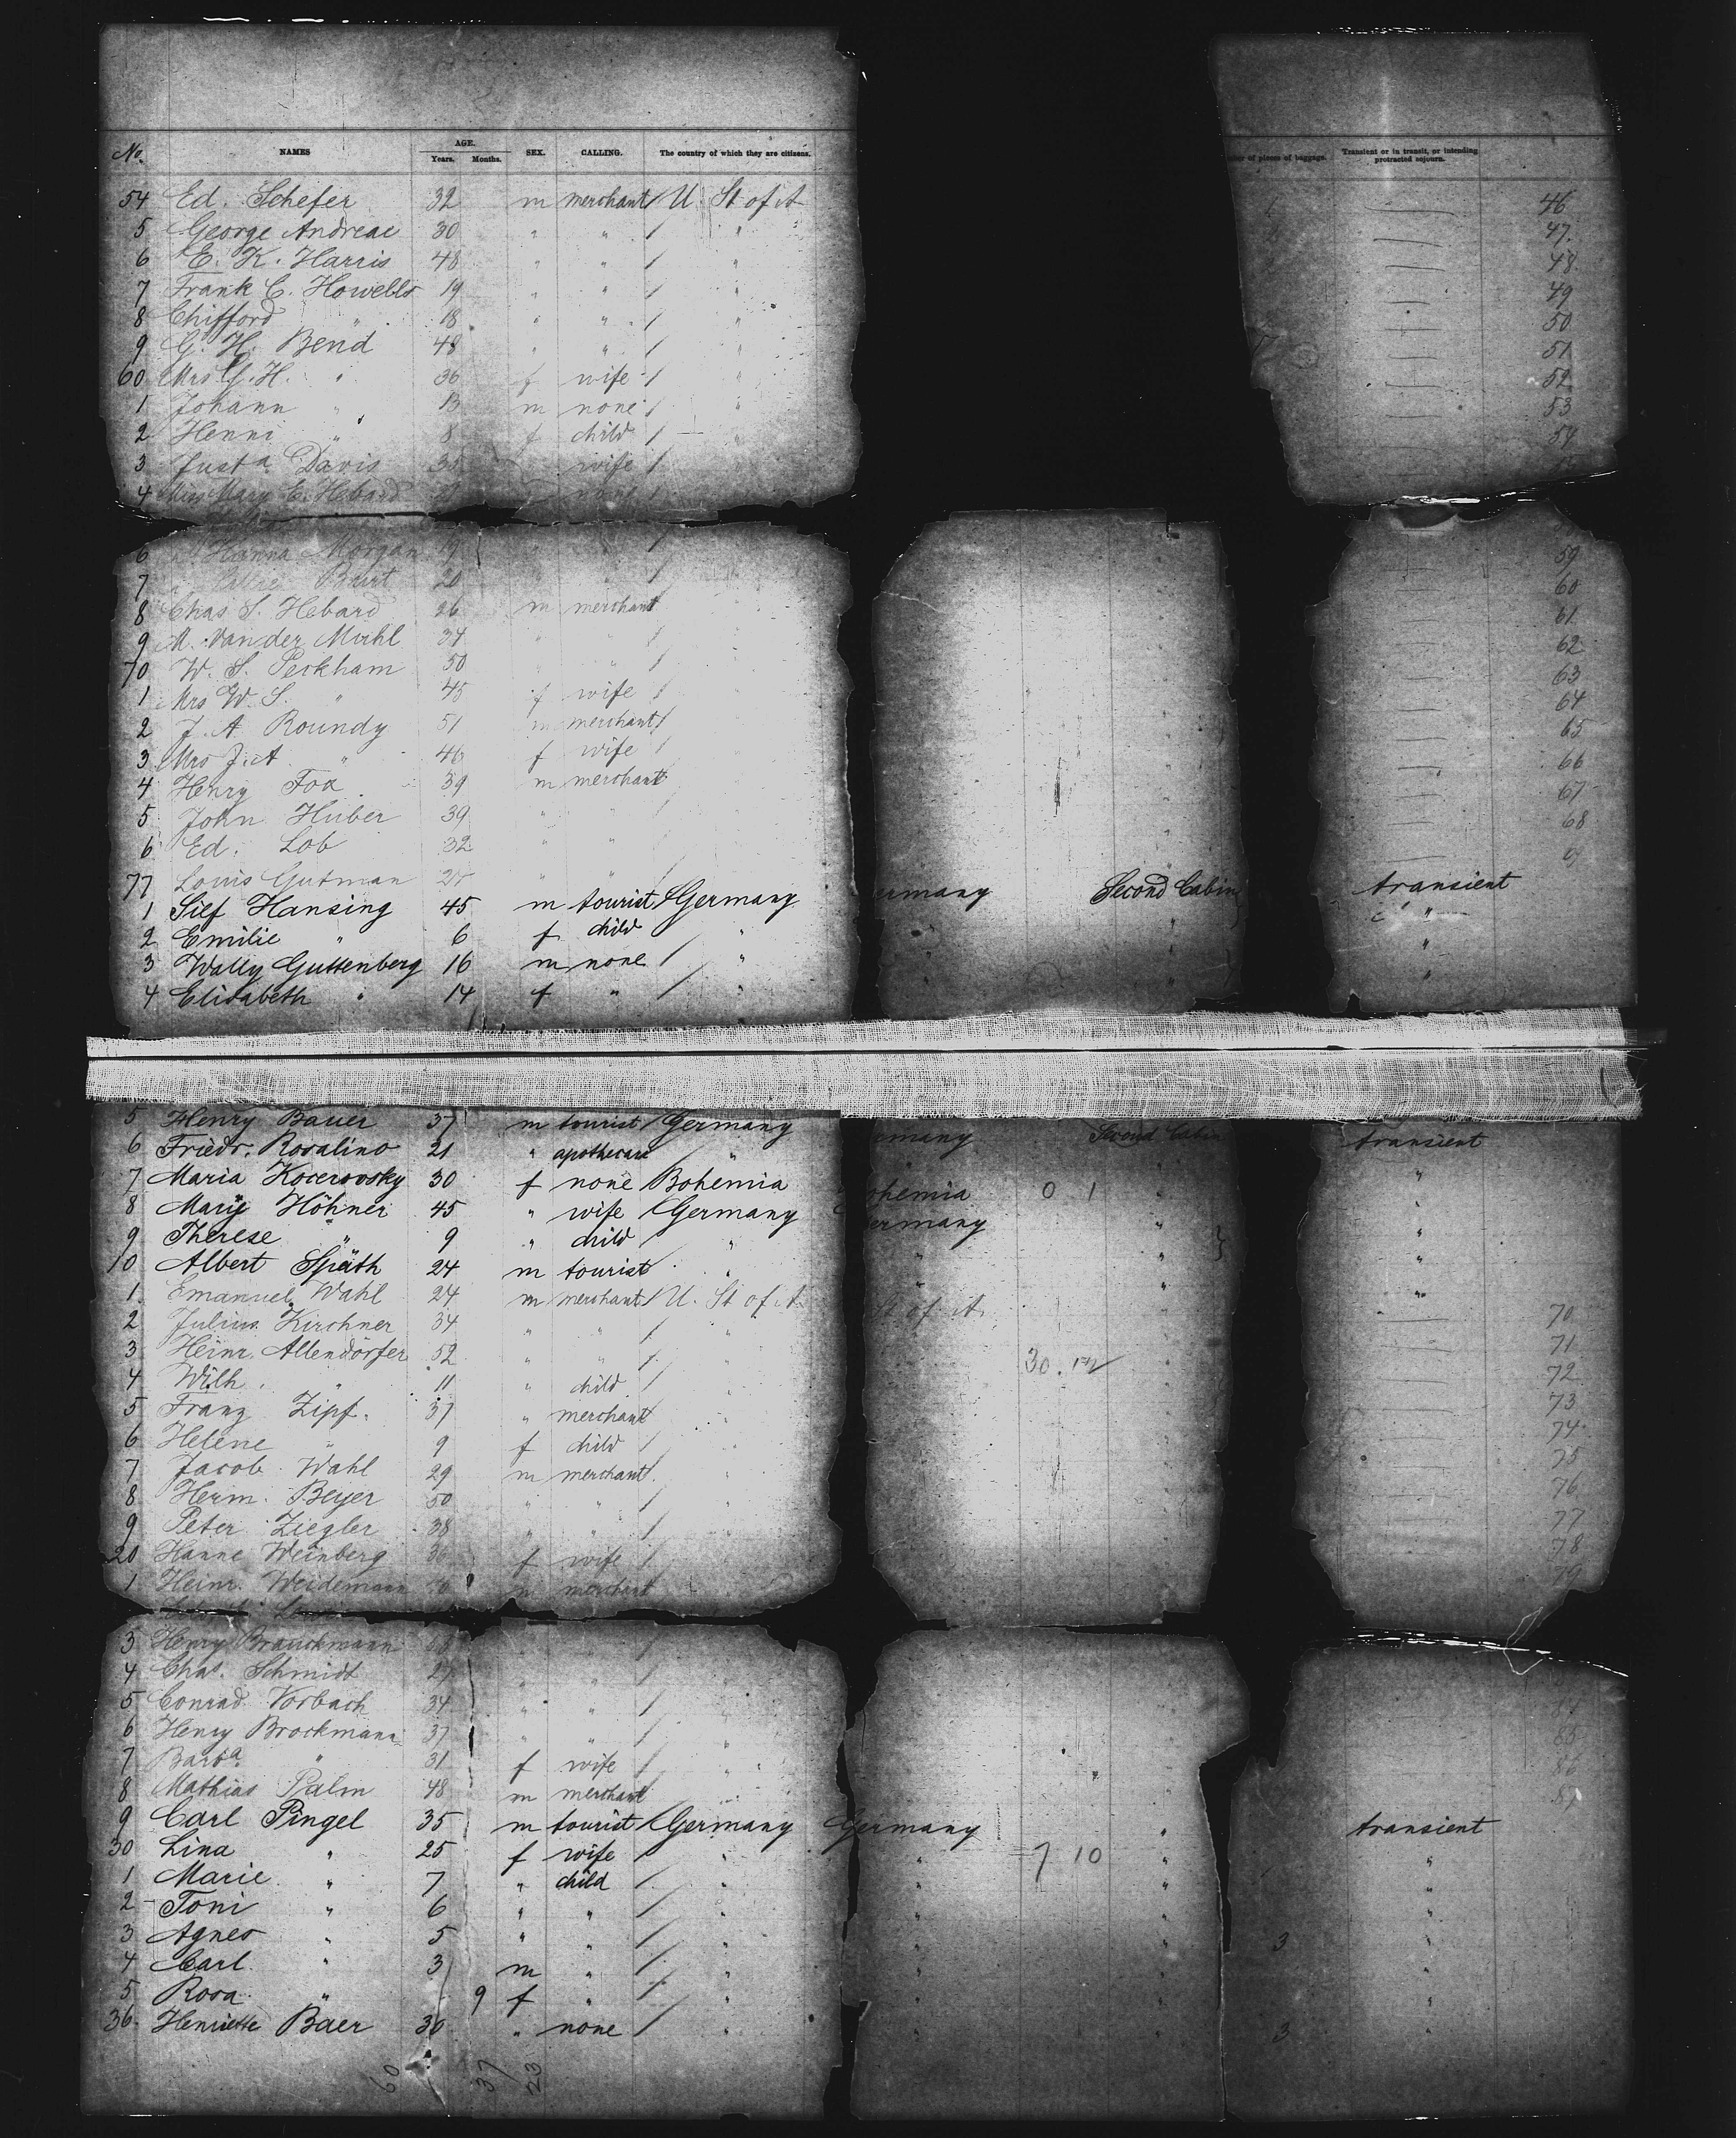 No. NAMES AGE. Years. Months. SEX. CALLING. The country of which they are citizens. of pieces of baggage. Transient or in transit, or intending protracted sojourn.
54 Ed. Schefer 32 m merchant / U. St of A 46
5 George Andreae 30 " " / " 47.
6 E. K. Harris 48 " " / " 48
7 Frank C. Howells 19 " " / " 49
8 Chifford " 18 " " / " 50
9 G. H. Bend 48 " " / " 51
60 Mrs G. H. " 36 f wife / " 52
1 Johann " 13 m none / " 53
2 Henni " 8 f child / " 54
3 Justa Davis 35 wife /
4 Miss Mary E. Hebard 21 none /
6 " Hanna Morgan 19 " " / 59
7 Burt 20 " " / 60
8 Chas S. Hebard 26 m merchant 61
9 M. Van der Muhl 34 " " / 62
70 W. S. Peckham 50 " " / 63
1 Mrs W. S. " 45 f wife / 64
2 J. A Roundy 51 m merchant / 65
3 Mrs J. A " 46 f wife / 66
4 Henry Fox 39 m merchant 67
5 John Huber 39 " " 68
6 Ed. Lob 32 " "
77 Louis Gutman
1 Silf Hansing 45 m tourist / Germany ermany Second Cabin transient
2 Emilie " 6 f child " " " "
3 Wally Guttenberg 16 m none / " " "
4 Elisabeth " 14 f " / " " "
5 Henry Bauer 37 m tourist / Germany rmany Second Cabin transient
6 Friedr. Rosalino 21 " apothecare / " "
7 Maria Kocerovsky 30 f none / Bohemia ohemia 0 1 " "
8 Marij Höhner 45 " wife / Germany ermany " "
9 Therese " 9 " child / " " " "
10 Albert Späth 24 m tourist " " " "
1 Emanuel Wahl 24 m merchant / U. St of A St of A 70
2 Julius Kirchner 34 " " / " 71
3 Heinr. Allendörfer 52 " " / " 30. 72
4 Wilh. " 11 " child / " 73
5 Franz Zipf. 37 " merchant " 74
6 Helene " 9 f child / " 75
7 Jacob Wahl 29 m merchant / " 76
8 Herm. Beyer 50 " " / " 77
9 Peter Ziegler 38 " " / " 78
20 Hanne Weinberg 36 f wife / 79
1 Heinr. Weidemann m merchant
3 Henry Brauckmann " " /
4 Chas. Schmidt 27 " " /
5 Conrad Vorbach 34 " " / "
6 Henry Brockmann 37 " " / " 85
7 Barba " 31 f wife / " 86
8 Mathias Palm 48 m merchant " 87
9 Carl Pingel 35 m tourist / Germany Germany " transient
30 Lina " 25 f wife / " " 7 10 " "
1 Marie " 7 " child / " " " "
2 Toni " 6 " " / " " " "
3 Agnes " 5 " " / " " " 3 "
4 Carl " 3 m " / " " " "
5 Rosa " 9 f " / " " " "
36 Henriette Baer 30 " none / " " " 3 "
60 37 23